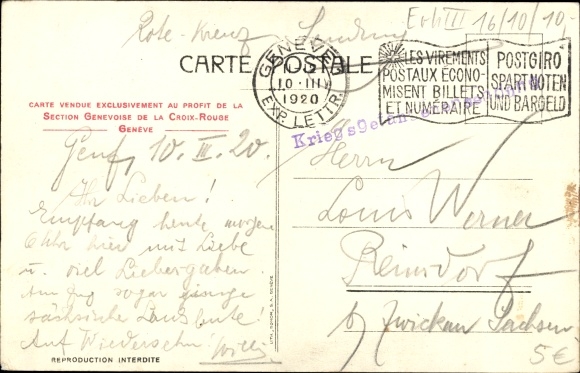 Rote-Kreuz Sendung
16/10/10.-
CARTE POSTALE
GENÈVE 1
10.III
1920
EXP. LETTR.
LES VIREMENTS
POSTAUX ÉCONO-
MISENT BILLETS
ET NUMÉRAIRE
POSTGIRO
SPART NOTEN
UND BARGELD
CARTE VENDUE EXCLUSIVEMENT AU PROFIT DE LA
SECTION GENEVOISE DE LA CROIX-ROUGE
GENÈVE
Genf, 10. III. 20.
Ihr Lieben!
Empfang heute morgen
6 Uhr hier mit Liebe
u. viel Liebesgaben.
Am Zug sogar einige
sächsische Landsleute!
Auf Wiedersehn! Willi
REPRODUCTION INTERDITE
Herrn
Louis Werner
Reinsdorf
b/ Zwickau Sachsen
5€